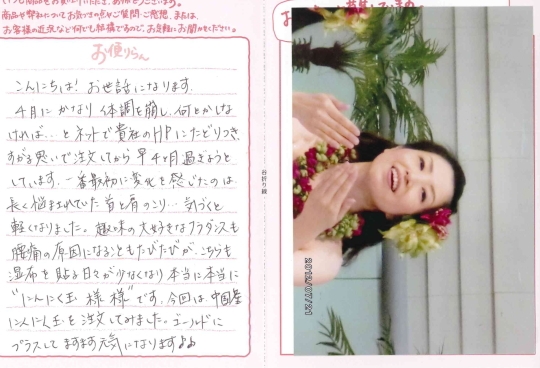 商品や弊社についてお気づきの点やご質問・ご感想、または、
お客様の近況など何でも結構ですので、お気軽にお聞かせください。
お便りらん
こんにちは! お世話になります。
4月にかなり体調を崩し、何とかしな
ければ…とネットで貴社のHPにたどりつき、
すがる思いで注文してから早4ヶ月過ぎようと
しています。一番最初に変化を感じたのは
長く悩まされていた首と肩のこり…気づくと
軽くなりました。趣味の大好きなフラダンスも
腰痛の原因になることもたびたびだが、こちらも
湿布を貼る日々が少なくなり本当に本当に
“にんにく玉 様 様”です。今回は中国産
にんにく玉を注文してみました。ゴールドに
プラスしてますます元気になりますよ
谷折り線
2012/07/21